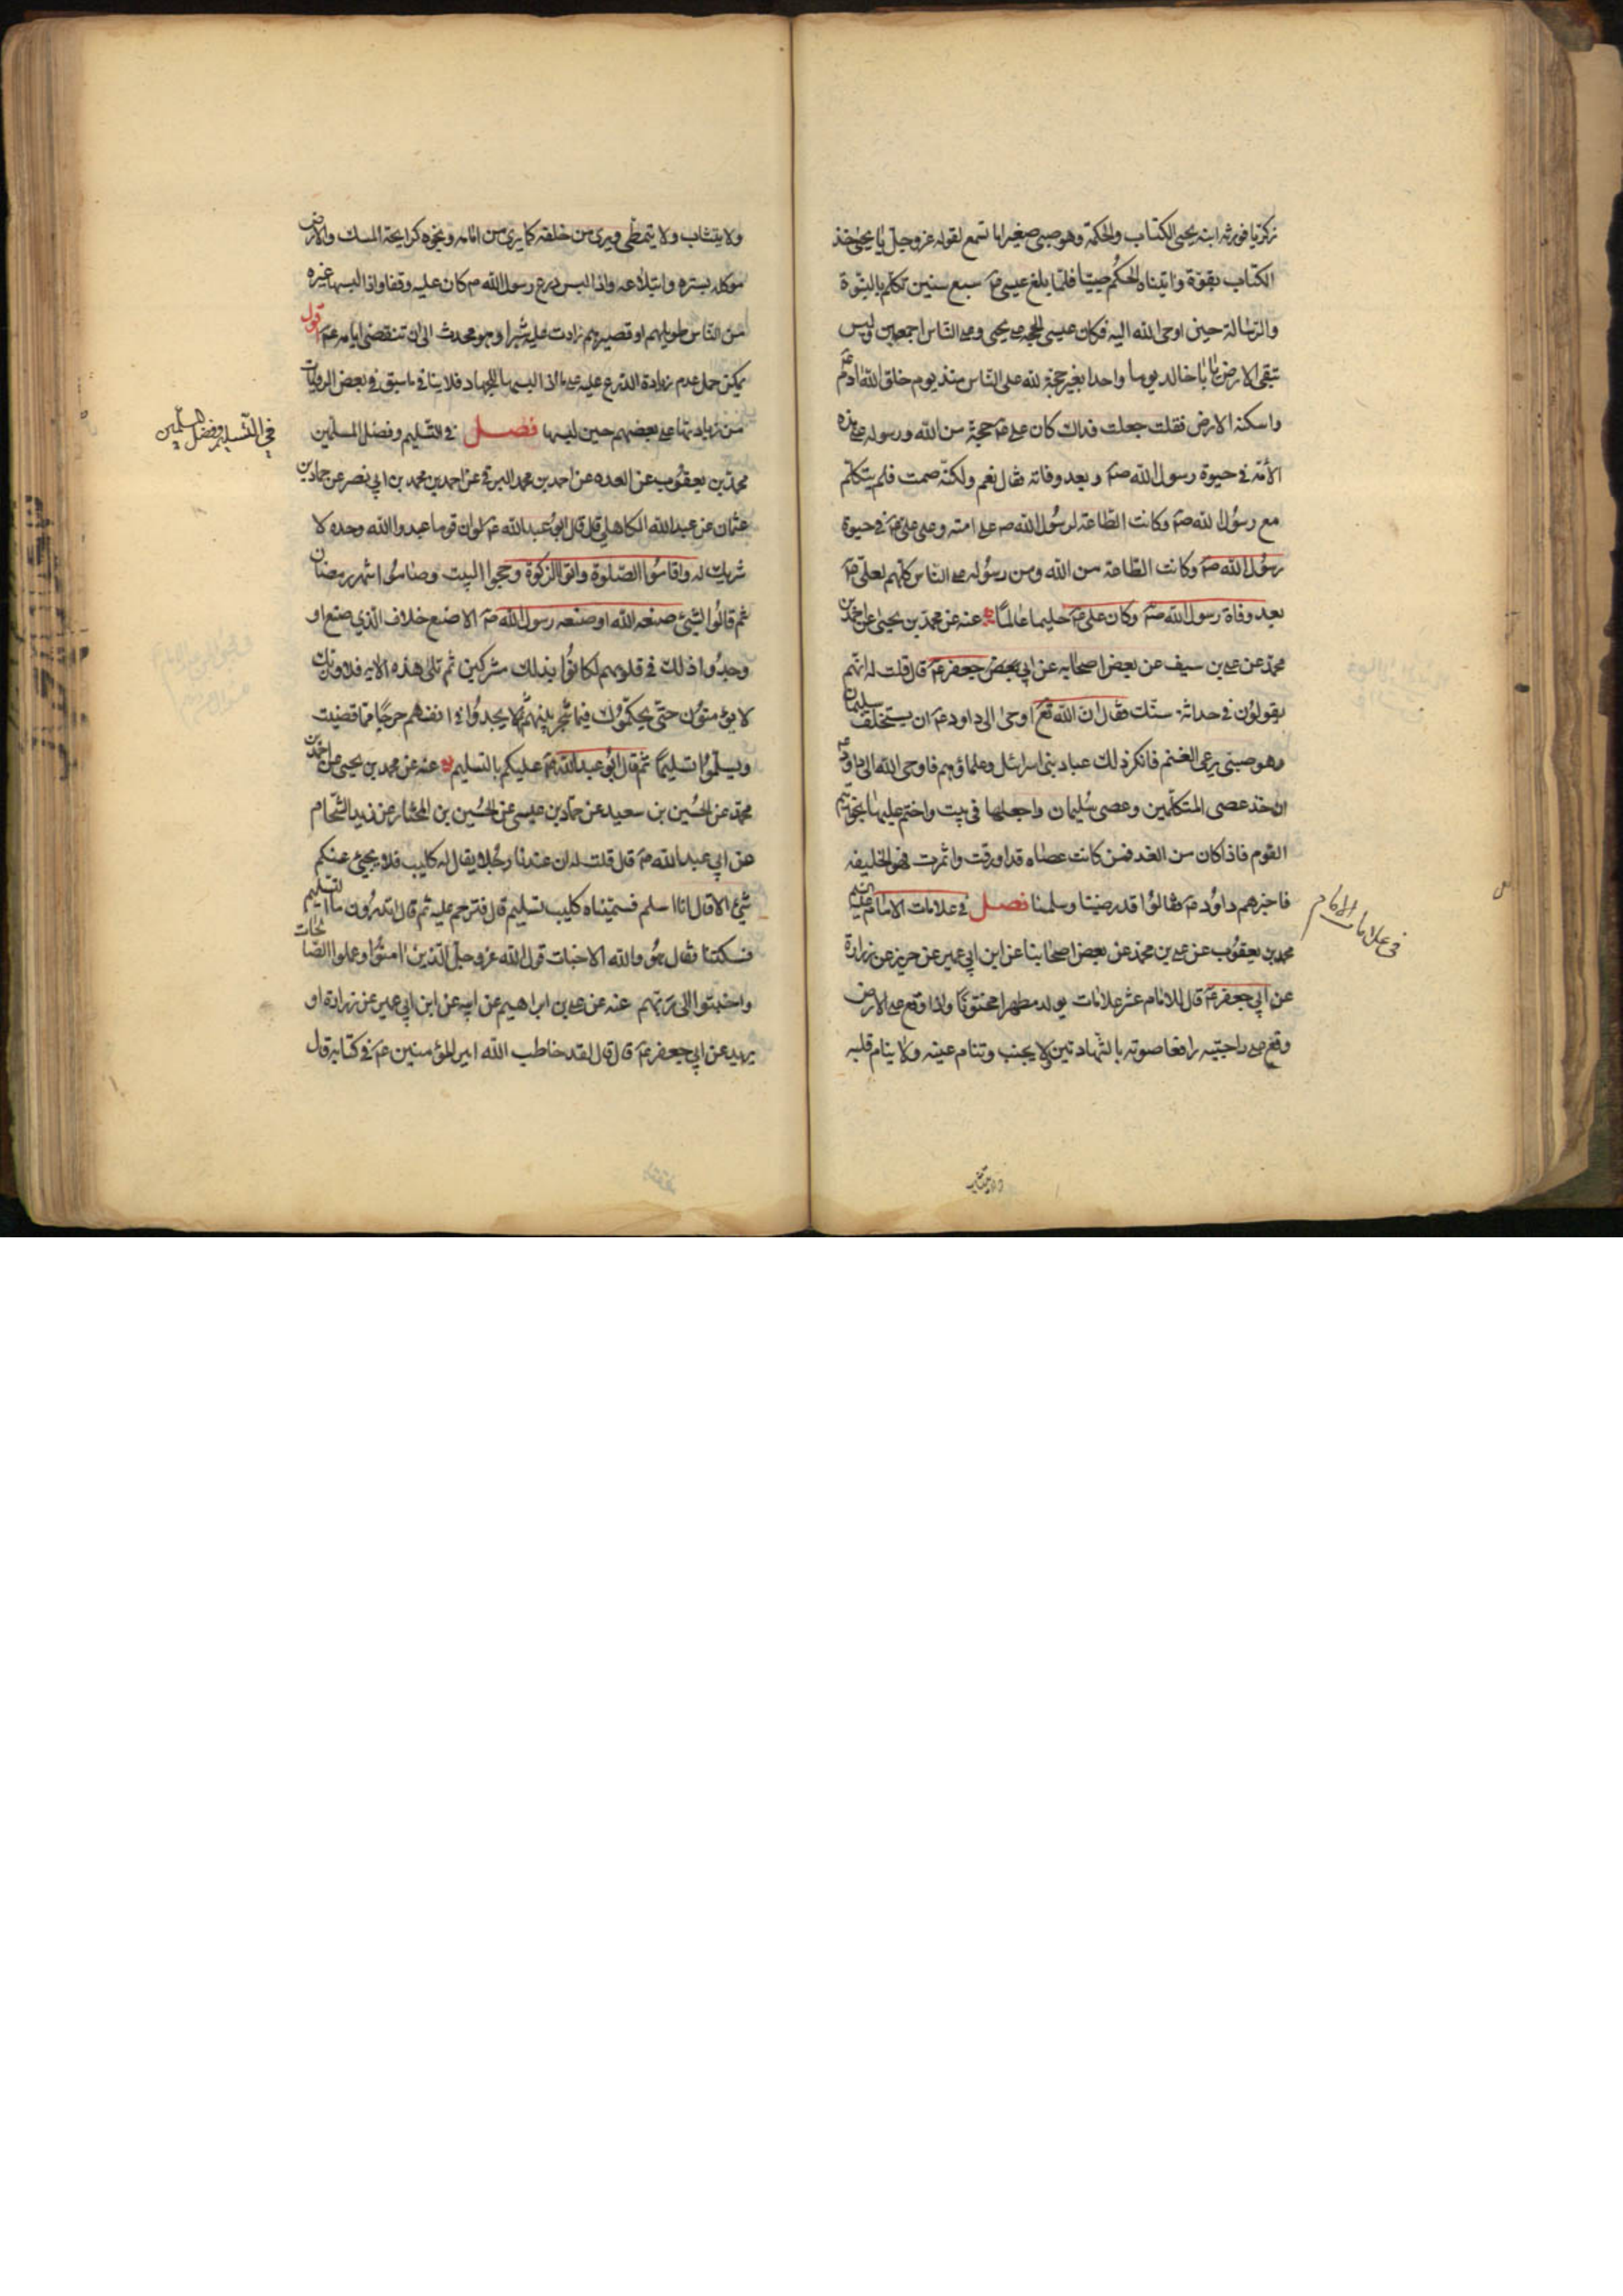 زكريا فورثه ابنه يحيى الكتاب والحكمة وهو صبي صغير اما تسمع لقوله عز وجل يا يحيى خذ
الكتاب بقوة واتيناه الحكم صبيا فلما بلغ عيسى ع سبع سنين تكلم بالنبوة
والرسالة حين اوحى الله اليه فكان عيسى الحجة على يحيى وعلى الناس اجمعين وليس
تبقى الارض يا با خالد يوما واحدا بغير حجة لله على الناس منذ يوم خلق الله ادم ع
واسكنه الارض فقلت جعلت فداك كان على ع حجة من الله ورسوله على هذه
الأمة في حيوة رسول الله صم وبعد وفاته فقال نعم ولكنه صمت فلم يتكلم
مع رسول الله صم وكانت الطاعة لرسول الله ص على امته وعلى على ع في حيوة
رسول الله صم وكانت الطاعة من الله ومن رسوله على الناس كلهم لعلى ع
بعد وفاة رسول الله صم وكان على ع حليما عالما عنه عن محمد بن يحيى عن احمد بن
محمد عن على بن سيف عن بعض اصحابه عن ابي جعفر ع قال قلت له انهم
يقولون في حداثة سنك فقال ان الله تع اوحى الى داود ع ان يستخلف سليمان
وهو صبي يرعى الغنم فانكر ذلك عباد بنى اسرائل وعلماؤهم فاوحى الله الى داود ع
ان خذ عصى المتكلمين وعصى سليمان واجعلها في بيت واختم عليها بخواتيم
القوم فاذا كان من الغد فمن كانت عصاه قد اورقت واثمرت فهو الخليفه
فاخبرهم داود ع فقالوا قد رضينا وسلمنا فصل في علامات الامام عليه السلم
محمد بن يعقوب عن على بن محمد عن بعض اصحابنا عن ابن ابي عمير عن حريز عن زرارة
عن ابي جعفر ع قال للامام عشر علامات يولد مطهرا مختونا واذا وقع على الارض
وقع على راحتيه رافعا صوته بالشهادتين ولا يجنب وتنام عينه ولا ينام قلبه
في علامات الامام
ولا يتثاب
ولا يتثاب ولا يتمطى ويرى من خلفه كما يرى من امامه ونجوه كرايحة المسك والارض
موكله بستره وابتلاعه واذا لبس درع رسول الله ص كان عليه وقفا واذا لبسها غيره
من الناس طويلهم او قصيرهم زادت عليه شبرا وهو محدث الى ان تنقضى ايامه ع اقول
يمكن حمل عدم زيادة الدرع عليه على ما اذا لبسها للجهاد فلا ينافي ما سبق في بعض الروايات
من زيادتها على بعضهم حين لبسها فصل في التسليم وفضل المسلمين
محمد بن يعقوب عن العدة عن احمد بن محمد البرقي عن احمد بن محمد بن ابي نصر عن حماد بن
عثمان عن عبد الله الكاهلي قال قال ابو عبد الله ع لو ان قوما عبدوا الله وحده لا
شريك له واقاموا الصلوة واتوا الزكوة وحجوا البيت وصاموا شهر رمضان
ثم قالوا لشيء صنعه الله او صنعه رسول الله صم الا صنع خلاف الذي صنع او
وجدوا ذلك في قلوبهم لكانوا بذلك مشركين ثم تلى هذه الايه فلا وربك
لا يؤمنون حتى يحكموك فيما شجر بينهم ثم لا يجدوا في انفسهم حرجا مما قضيت
ويسلموا تسليما ثم قال ابو عبد الله ع عليكم بالتسليم عنه عن محمد بن يحيى عن احمد بن
محمد عن الحسين بن سعيد عن حماد بن عيسى عن الحسين بن المختار عن زيد الشحام
عن ابي عبد الله ع قال قلت له ان عندنا رجلا يقال له كليب فلا يجيئ عنكم
شيئ الا قال انا اسلم فسميناه كليب تسليم قال فترحم عليه ثم قال اتدرون ما التسليم
فسكتنا فقال هو والله الاخبات قول الله عز وجل الذين امنوا وعملوا الصالحات
واخبتوا الى ربهم عنه عن على بن ابراهيم عن ابيه عن ابن ابي عمير عن زرارة او
بريد عن ابي جعفر ع قال قال لقد خاطب الله امير المؤمنين ع في كتابه قال
في التسليم وفضل المسلمين